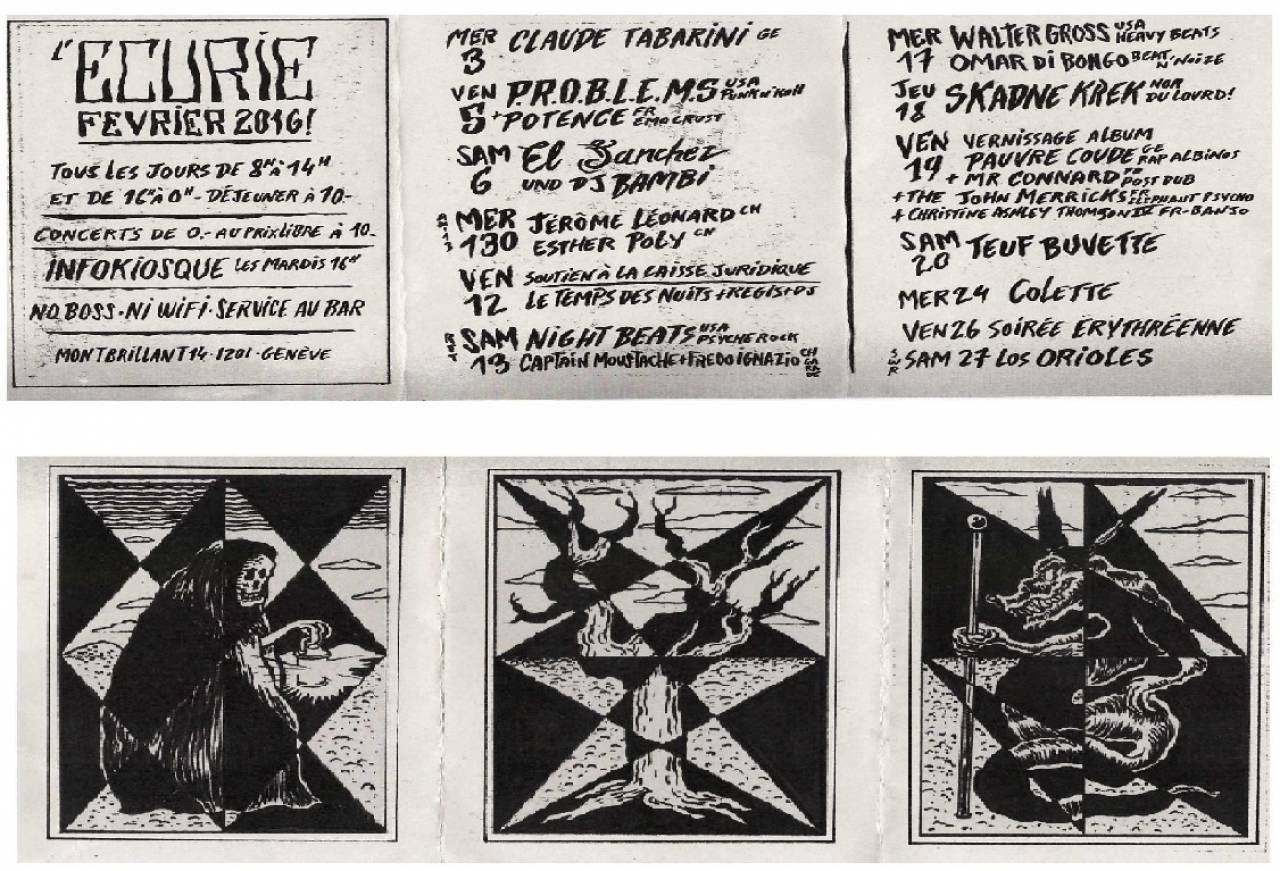 L'ECURIE
FEVRIER 2016!
TOUS LES JOURS DE 8H À 14H
ET DE 16H À 0H - DÉJEUNER À 10.-
CONCERTS DE 0.- AU PRIX LIBRE À 10.-
INFOKIOSQUE LES MARDIS 16H
NO BOSS · NI WIFI · SERVICE AU BAR
MONTBRILLANT 14 · 1201 · GENÈVE
MER 3 CLAUDE TABARINI GE
VEN 5 P.R.O.B.L.E.M.S USA PUNK N'ROLL
+ POTENCE FR EMO CRUST
SAM 6 El Sanchez
UND DJ BAMBI
MER 10 JÉRÔME LÉONARD CH
ESTHER POLY CH
VEN 12 SOUTIEN À LA CAISSE JURIDIQUE
LE TEMPS DES NUITS + REGIS + DJ
SAM 13 NIGHT BEATS USA PSYCHE ROCK
CAPTAIN MOUSTACHE + FREDO IGNAZIO CH GARAGE
MER 17 WALTER GROSS USA HEAVY BEATS
OMAR DI BONGO BEAT N'NOIZE
JEU 18 SKADNE KREK NOR DU LOURD!
VEN 19 VERNISSAGE ALBUM
PAUVRE COUDE GE RAP ALBINOS
+ MR CONNARD FR POST DUB
+ THE JOHN MERRICKS FR ÉLÉPHANT PSYCHO
+ CHRISTINE ASHLEY THOMSON IV FR-BANJO
SAM 20 TEUF BUVETTE
MER 24 COLETTE
VEN 26 SOIRÉE ÉRYTHRÉENNE
SAM 27 LOS ORIOLES